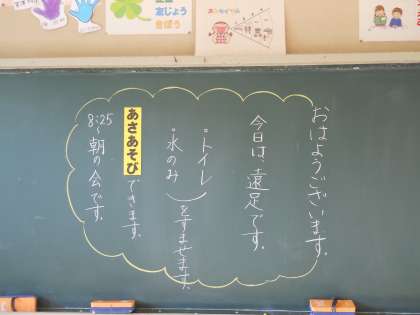 おはようございます。
今日は、遠足です。
・トイレ
・水のみ
をすませます。
あさあそび
できます。
8:25〜朝の会です。
友じょう
きぼう